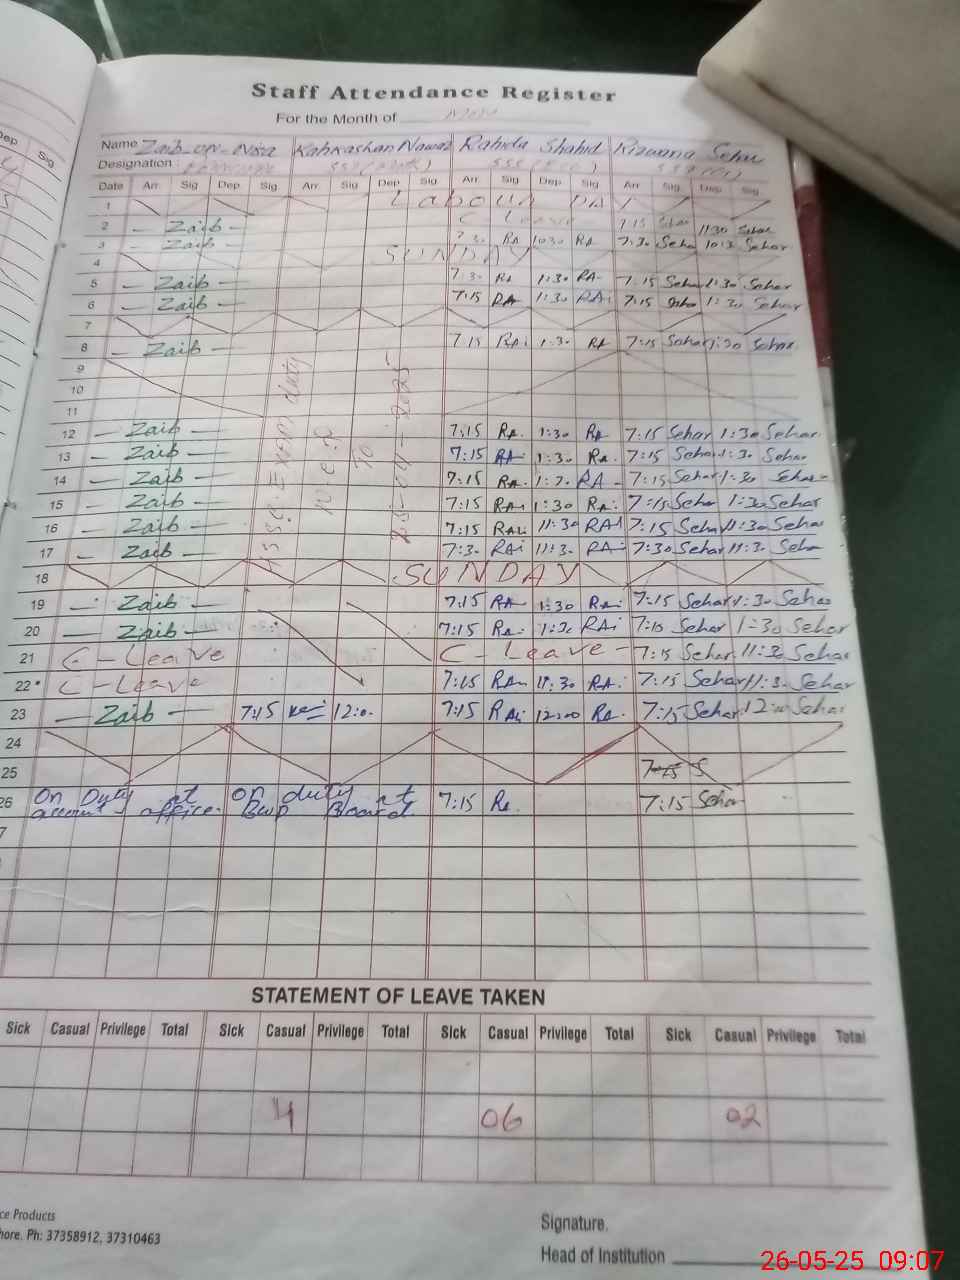 Staff Attendance Register
For the Month of May
Name Zaib-un-Nisa Kahkashan Nawaz Rahida Shahid Rizwana Sehar
Designation :
Date Arr Sig Dep Sig Arr Sig Dep Sig Arr Sig Dep Sig Arr Sig Dep Sig
1 Labour DAY
2 - Zaib - C Leave 7:15 Sehar 11:30 Sehar
3 - Zaib - 7:30 RA 10:30 RA 7:30 Seha 10:3 Sehar
4 SUNDAY
5 - Zaib - 7:30 RA 1:30 RA. 7:15 Sehar 1:30 Sehar
6 - Zaib - 7:15 RA 1:30 RAi 7:15 Seha 1:30 Sehar
7
8 - Zaib - 7:15 RAi 1:30 RA 7:15 Sehar 1:30 Sehar
9
10
11
Exam duty
to
2025
12 - Zaib - 7:15 RA. 1:30 RA 7:15 Sehar 1:30 Sehar
13 - Zaib - 7:15 RA 1:30 RA. 7:15 Sehar 1:30 Sehar
14 - Zaib - 7:15 RA. 1:30 RA - 7:15 Sehar 1:30 Sehar
15 - Zaib - 7:15 RAi 1:30 RA: 7:15 Seha 1:30 Sehar
16 - Zaib - 7:15 RAi 11:30 RAi 7:15 Sehar 11:30 Sehar
17 - Zaib - 7:30 RAi 11:30 RAi 7:30 Sehar 11:30 Seha
18 SUNDAY
19 - Zaib - 7:15 RA 1:30 RA: 7:15 Sehar 1:30 Sehar
20 - Zaib - 7:15 RA: 1:30 RAi 7:15 Sehar 1:30 Sehar
21 C-Leave C-Leave - 7:15 Sehar 11:30 Sehar
22 C-Leave 7:15 RA 11:30 RA: 7:15 Sehar 11:3 Sehar
23 - Zaib - 7:15 12:0. 7:15 RAi 12:00 RA. 7:15 Sehar 12:00 Sehar
24
25 7:15 S
26 On Duty at on duty at 7:15 RA 7:15 Sehar
account office. Bwp Board.
7
STATEMENT OF LEAVE TAKEN
Sick Casual Privilege Total Sick Casual Privilege Total Sick Casual Privilege Total Sick Casual Privilege Total
4 06 02
ce Products
hore. Ph: 37358912, 37310463
Signature.
Head of Institution
26-05-25 09:07